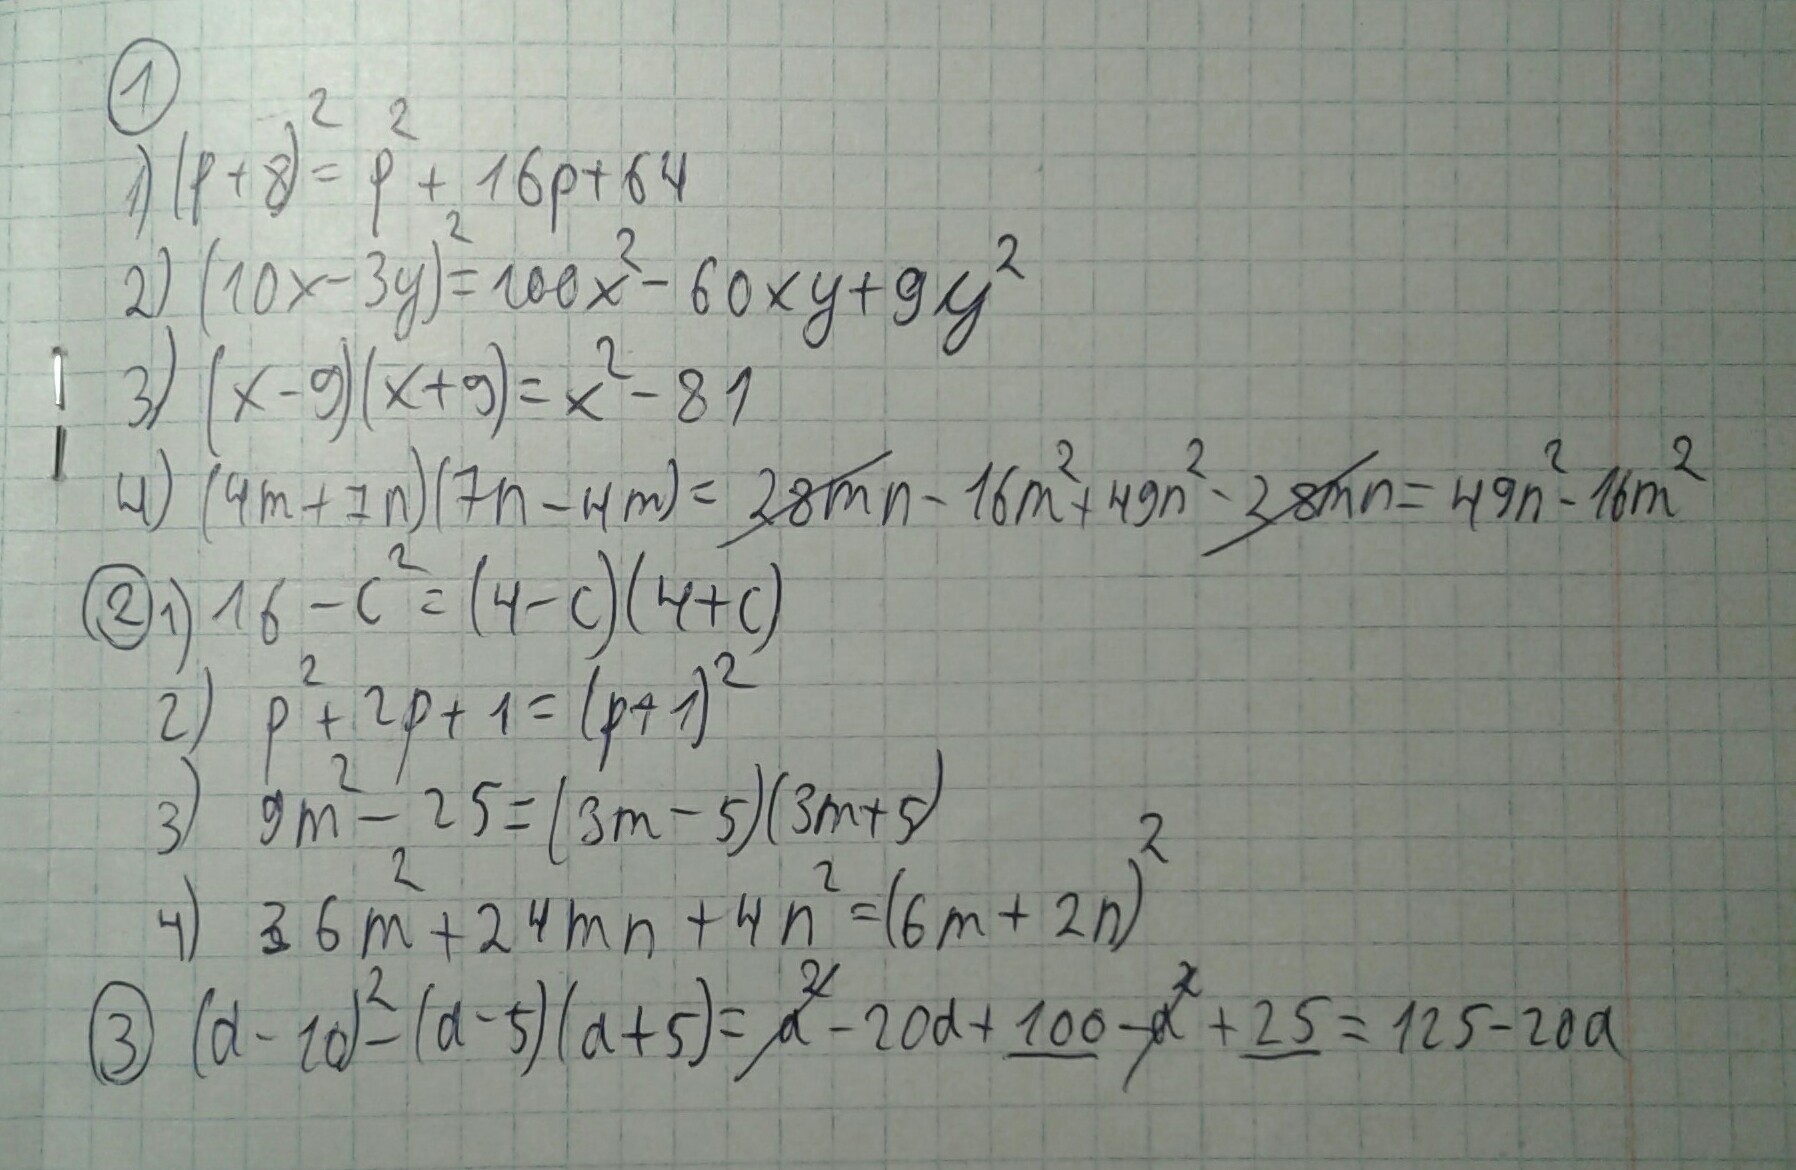 ①
1) (p+8)² = p² + 16p+64
2) (10x-3y)² = 100x² - 60xy+9y²
3) (x-9)(x+9) = x² - 81
4) (4m+7n)(7n-4m) = 28mn - 16m² + 49n² - 28mn = 49n² - 16m²
② 1) 16 - c² = (4-c)(4+c)
2) p² + 2p + 1 = (p+1)²
3) 9m² - 25 = (3m-5)(3m+5)
4) 36m² + 24mn + 4n² = (6m+2n)²
③ (a-10)² - (a-5)(a+5) = a² - 20a + 100 - a² + 25 = 125 - 20a